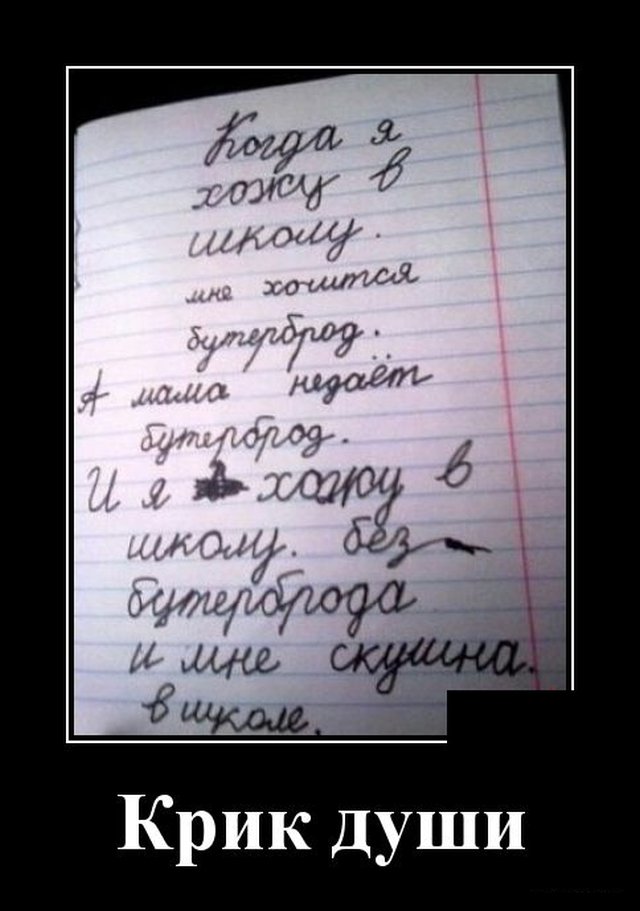 Когда я
хожу в
школу.
мне хочится
бутерброд.
А мама недаёт
бутерброд.
И я хожу в
школу. без
бутерброда
и мне скушна.
в школе.
Крик души